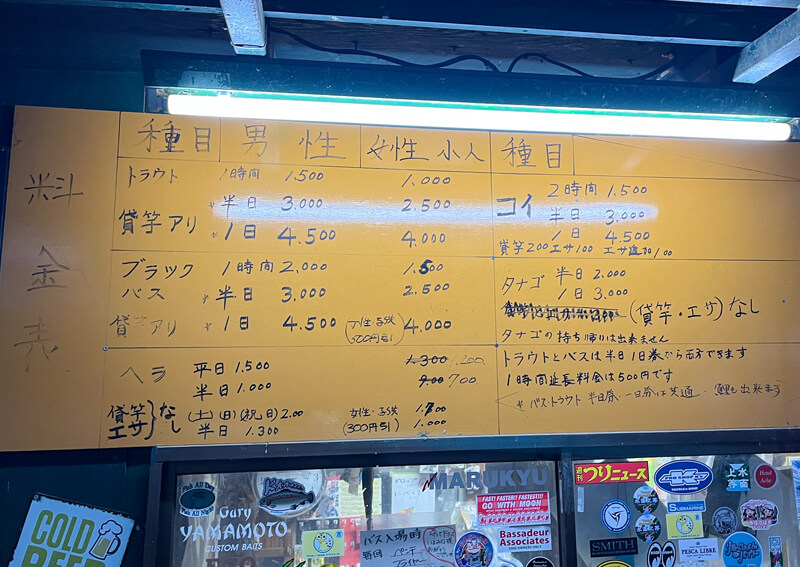 料金表
種目 男性 女性 小人 種目
トラウト 1時間 1.500 1.000
半日 3.000 2.500
貸竿アリ 1日 4.500 4.000
ブラック 1時間 2.000 1.500
バス 半日 3.000 2.500
貸竿アリ 1日 4.500 (女性・子供 500円引) 4.000
ヘラ 平日 1.500 1.300 1.200
半日 1.000 900 700
貸竿 エサ なし (土)(日)(祝日) 2.00 女性・子供 1.700
半日 1.300 (300円引) 1.000
コイ 2時間 1.500
半日 3.000
1日 4.500
貸竿200 エサ100 エサ追加100
タナゴ 半日 2.000
1日 3.000
(貸竿・エサ)なし
タナゴの持ち帰りは出来ません
トラウトとバスは半日1日券なら両方できます
1時間延長料金は500円です
* バス・トラウト 半日券・一日券は共通・(鯉も出来ます)
COLD
BEER
Fish All Day
Gary
YAMAMOTO
CUSTOM BAITS
MARUKYU
FAST! FASTER!! FASTEST!!!
GO WITH MOON
Bassadeur
Associates
バス入場時
週刊 つりニュース
上水
SUBMARINE
SMITH
MOON
PESCA LIBRE
Head